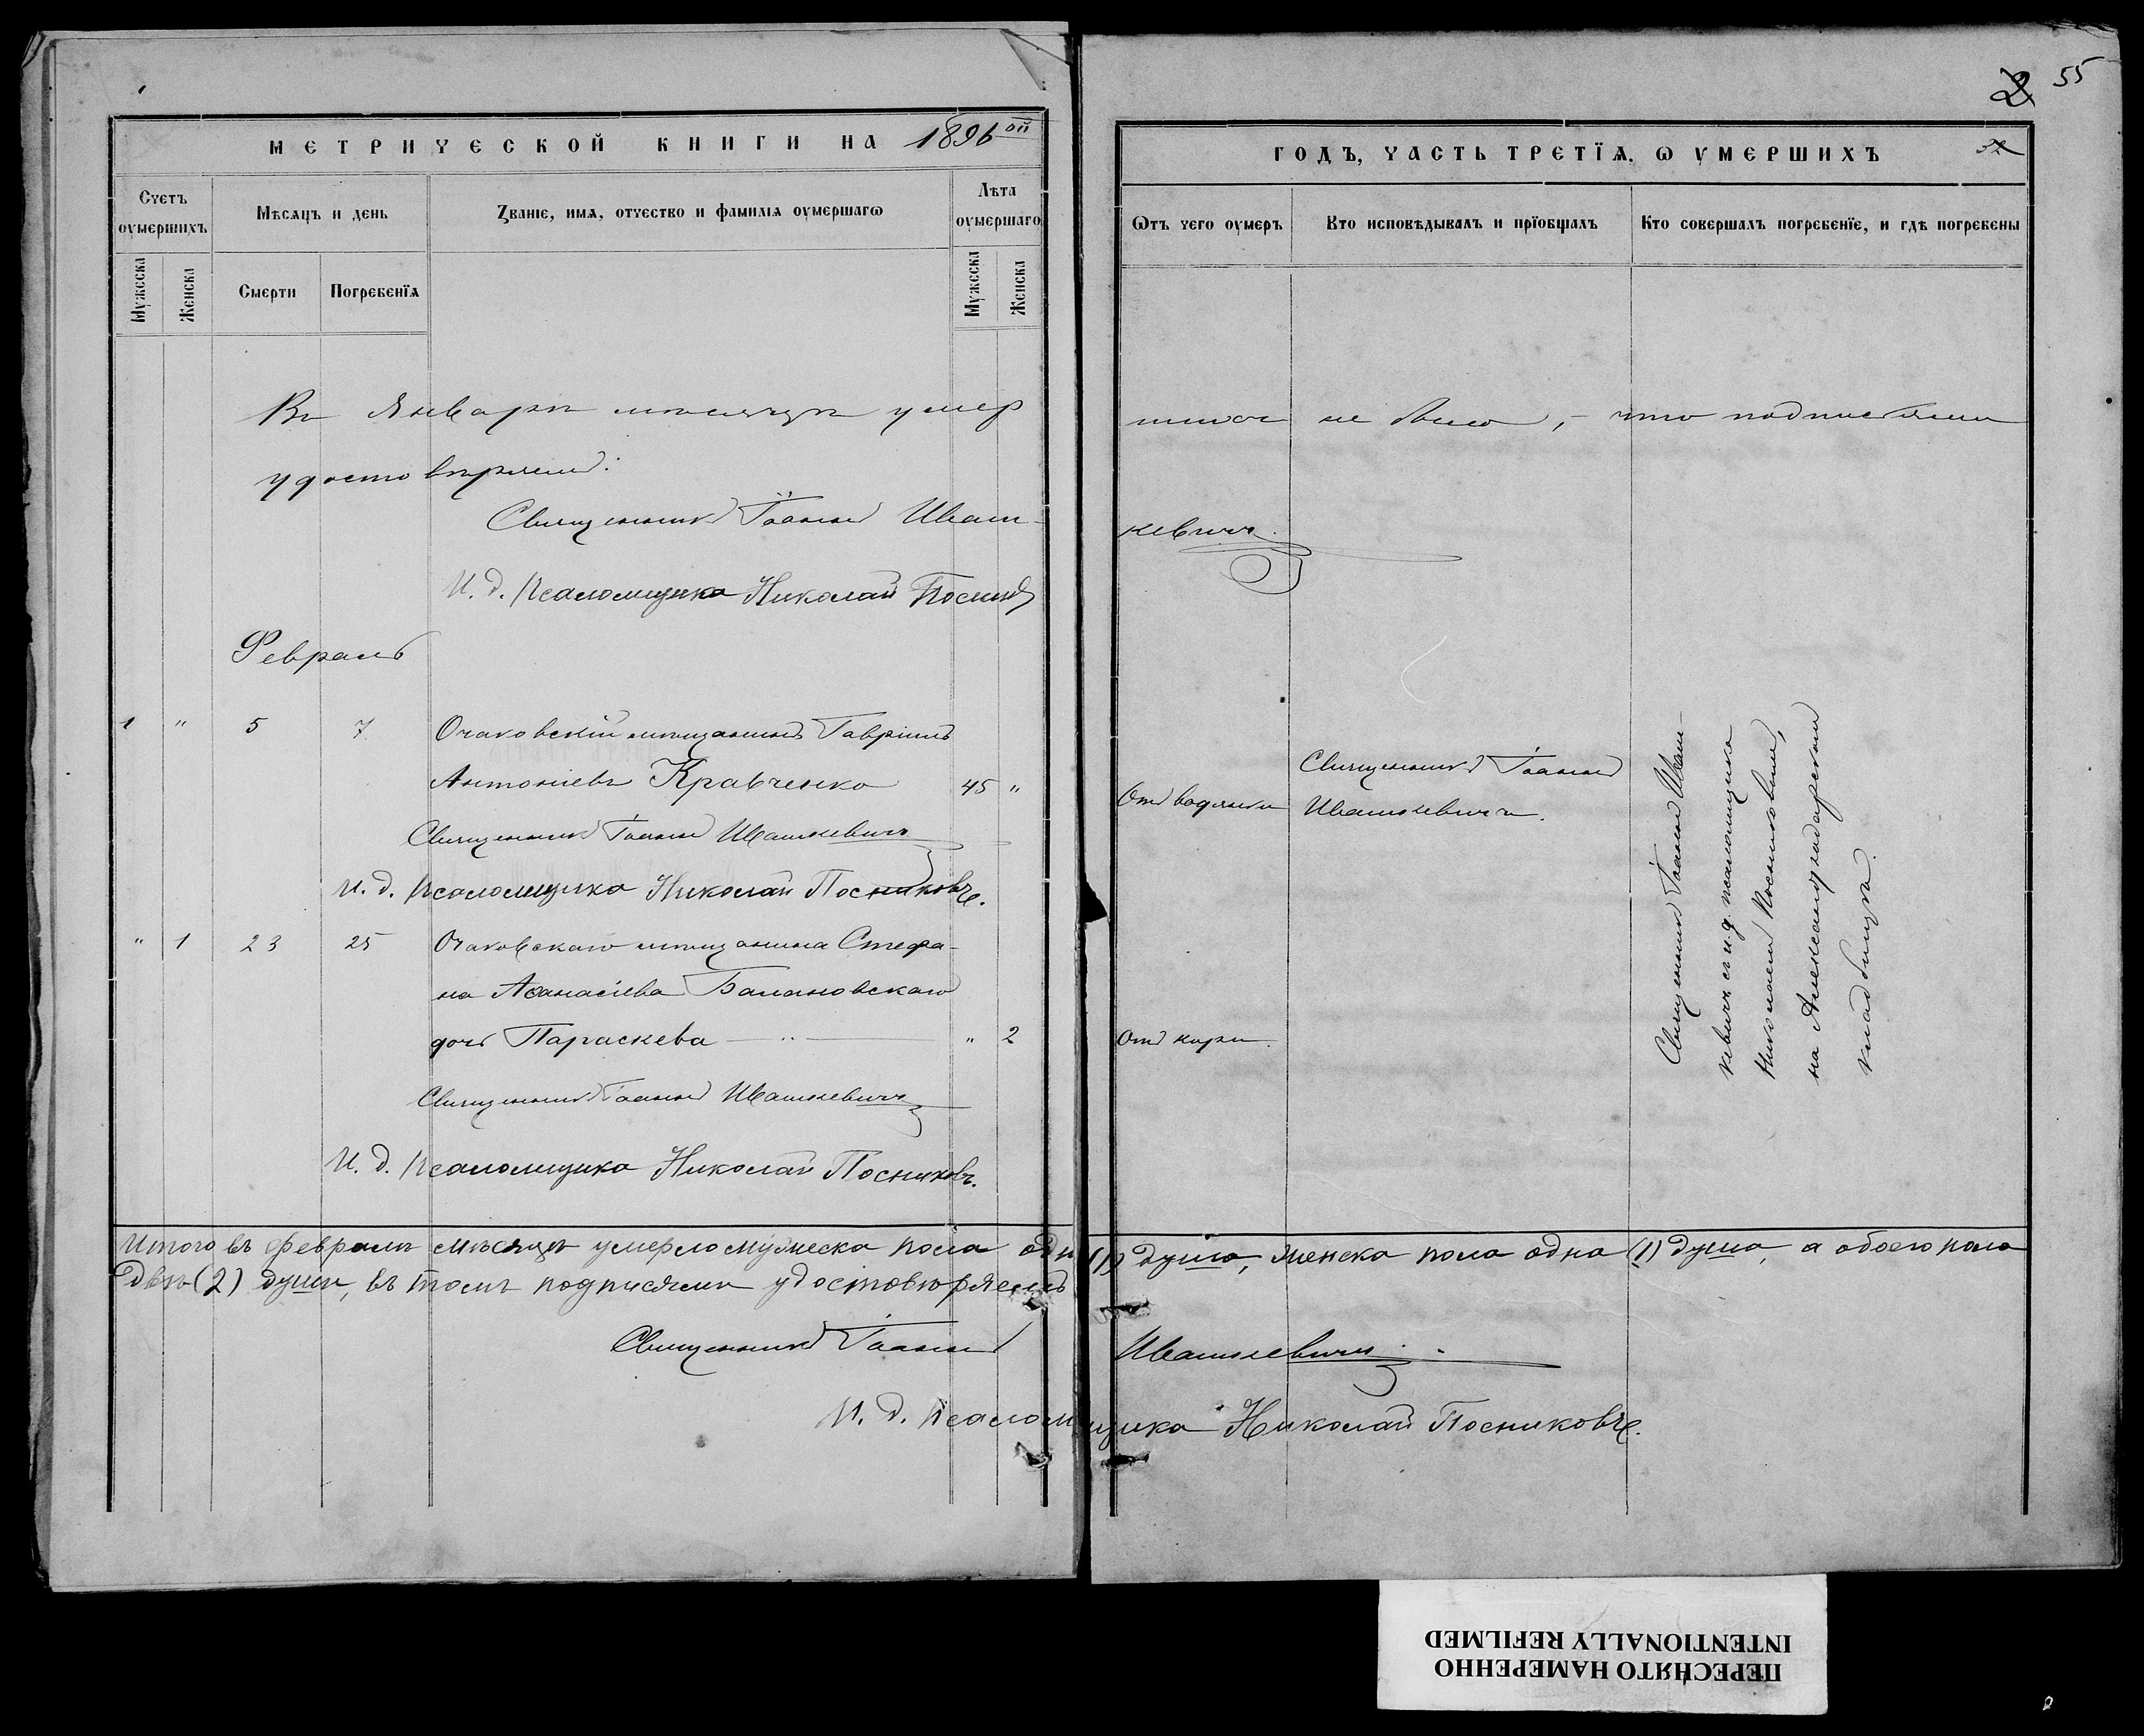 55
МЕТРИЧЕСКОЙ КНИГИ НА 1896ой
ГОДЪ, ЧАСТЬ ТРЕТІЯ, Ѡ УМЕРШИХЪ
Счетъ оумершихъ
Мѣсяцъ и день
Званіе, имя, отчество и фамилія оумершагѡ
Лѣта оумершаго
Ѡтъ чего оумеръ
Кто исповѣдывалъ и пріобщалъ
Кто совершалъ погребеніе, и гдѣ погребены
Мужеска
Женска
Смерти
Погребенія
Мужеска
Женска
Въ Январѣ мѣсяцѣ умер
шихъ не было, – что подписями
удостовѣряемъ:
Священникъ Іоаннъ Иваш-
кевичъ.
И. д. псаломщика Николай
Февраль
1 " 5 7 Очаковскій мѣщанинъ Гавріилъ
Антоніевъ Кравченко 45 "
Отъ водянки
Священникъ Іоаннъ
Ивашкевичъ.
Священникъ Іоаннъ Ивашкевичъ
И. д. псаломщика Николай Посниковъ.
" 1 23 25 Очаковскаго мѣщанина Стефа-
на Аѳанасіева Балановскаго
дочь Параскева " 2
Отъ кори.
Священникъ Іоаннъ Ивашкевичъ
И. д. псаломщика Николай Посниковъ.
Священникъ Іоаннъ Иваш-
кевичъ съ и. д. псаломщика
Николаемъ Посниковымъ,
на Александродарскомъ
кладбищѣ.
Итого въ Февралѣ мѣсяцѣ умерло мужеска пола одн (1) душа, женска пола одна (1) душа, а обоего пола
двѣ (2) души, въ томъ подписями удостовѣряемъ
Священникъ Іоаннъ Ивашкевичъ.
И. д. псаломщика Николай Посниковъ.
ПЕРЕСНЯТО НАМЕРЕННО
INTENTIONALLY REFILMED